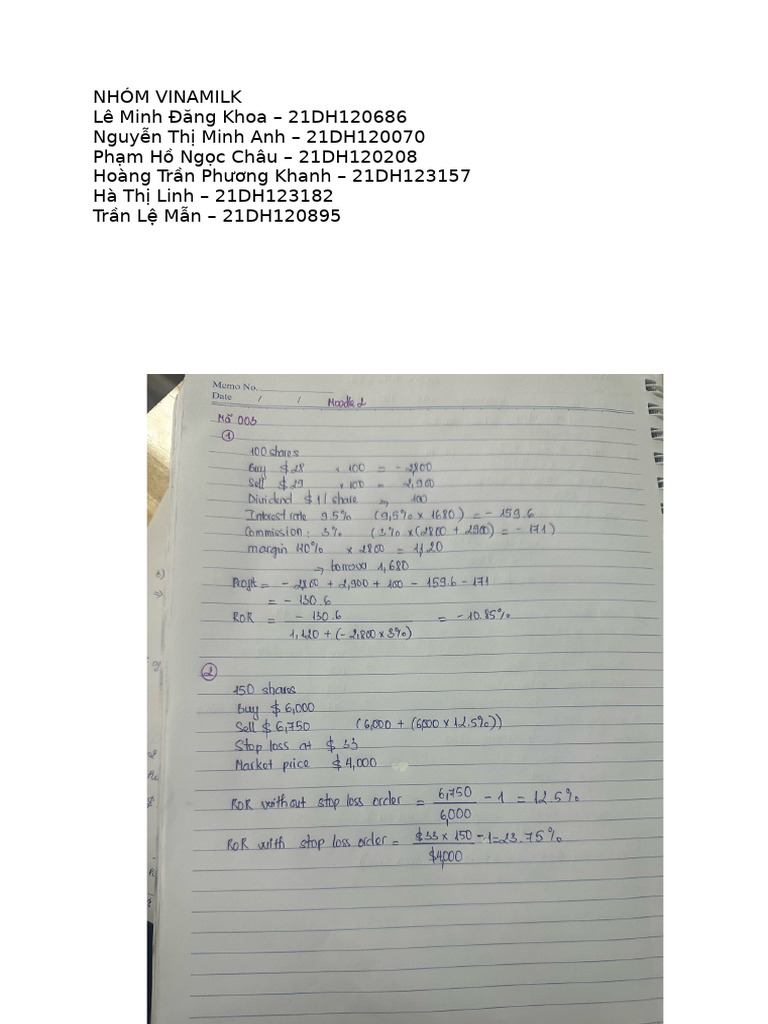 NHÓM VINAMILK
Lê Minh Đăng Khoa – 21DH120686
Nguyễn Thị Minh Anh – 21DH120070
Phạm Hồ Ngọc Châu – 21DH120208
Hoàng Trần Phương Khanh – 21DH123157
Hà Thị Linh – 21DH123182
Trần Lệ Mẫn – 21DH120895
Memo No.
Date / / Moodle 2
Mã 003
①
100 shares
Buy $28 × 100 = - 2,800
Sell $29 × 100 = 2,900
Dividend $1/share → 100
Interest rate 9.5% (9,5% × 1680) = - 159.6
Commission: 3% (3% × (2800 + 2900) = - 171)
margin 40% × 2800 = 1,120
→ borrow 1,680
Profit = - 2,800 + 2,900 + 100 - 159.6 - 171
= - 130.6
RoR = - 130.6 / 1,120 + (- 2,800 × 3%) = - 10.85%
②
150 shares
Buy $6,000
Sell $6,750 (6,000 + (6,000 × 12.5%))
Stop loss at $33
Market price $4,000
RoR without stop loss order = 6,750 / 6,000 - 1 = 12.5%
RoR with stop loss order = $33 × 150 / $4,000 - 1 = 23.75%